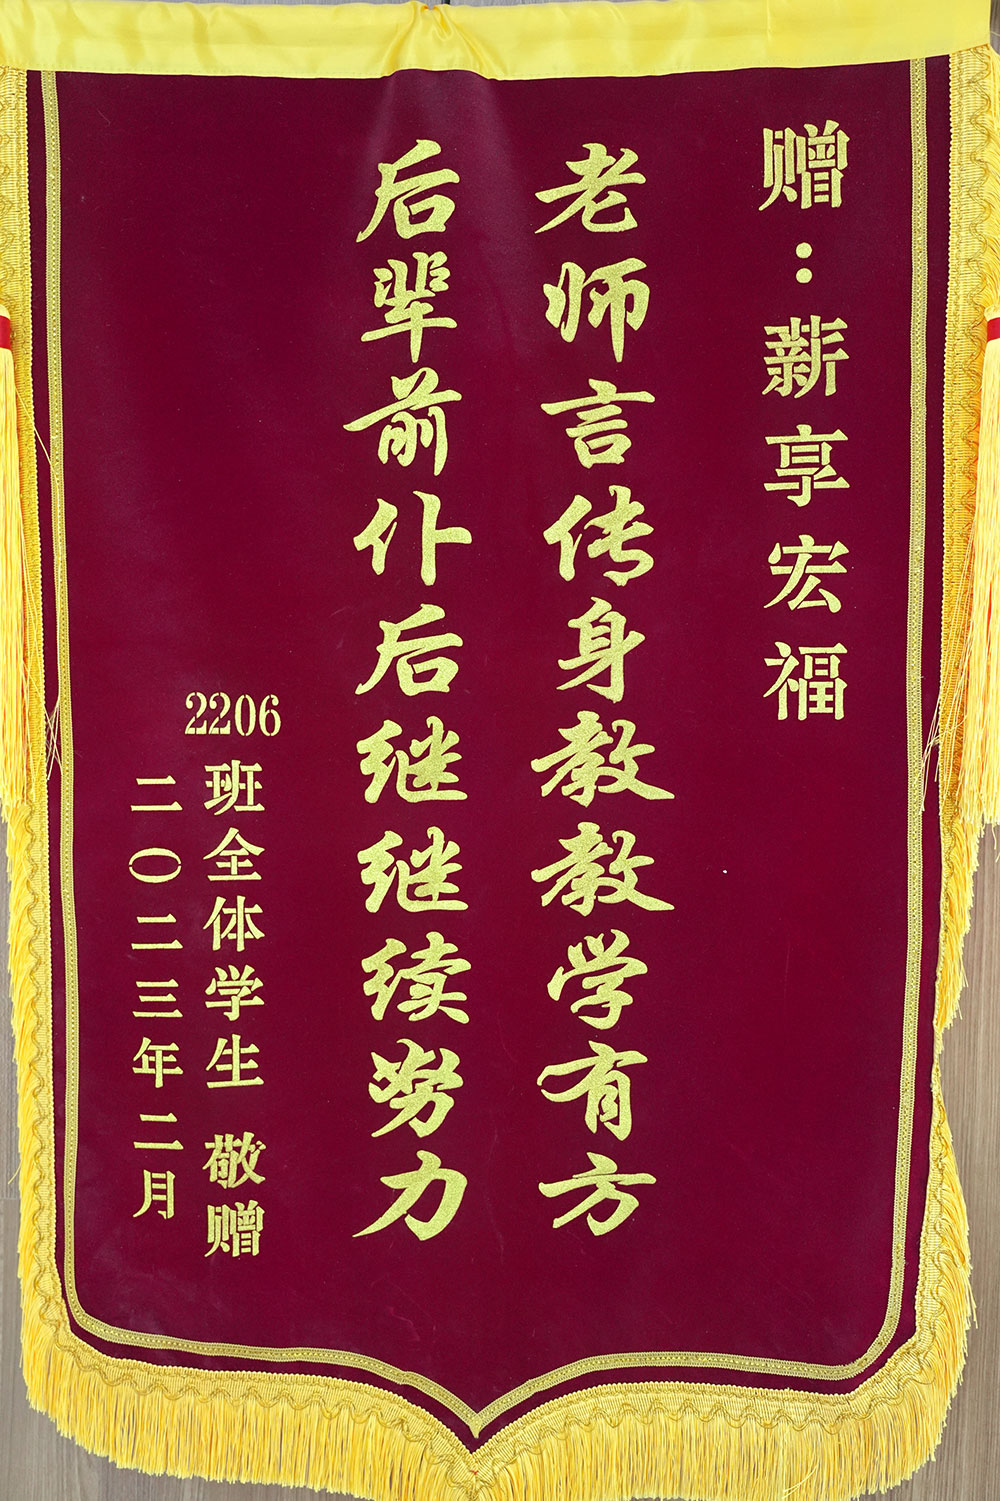 赠：薪享宏福
老师言传身教教学有方
后辈前仆后继继续努力
2206班全体学生 敬赠
二〇二三年二月